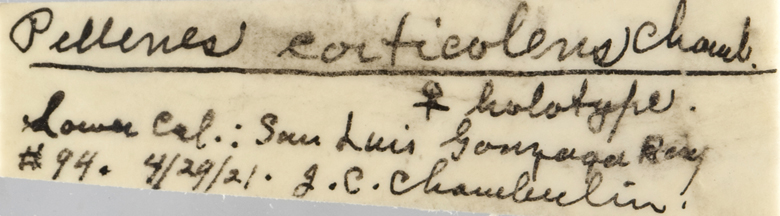 Pellenes corticolens Chamb.
♀ holotype.
Lower Cal.: San Luis Gonzaga Bay
#94. 4/29/21. J.C. Chamberlin.